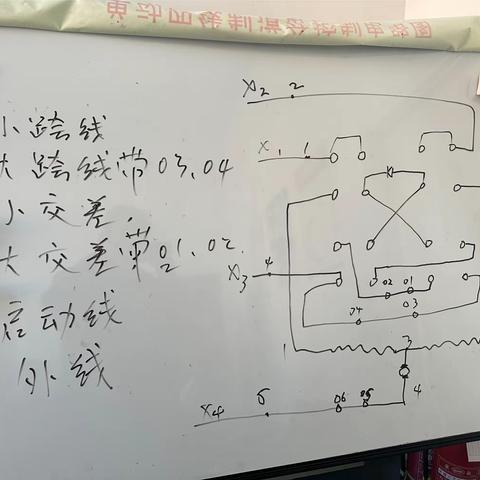 小跨线
大跨线带03.04
小交差.
大交差带01.02
启动线
外线
X2 2
X1 1
X3 4
02 01
04 03
1 3
4
X4 5 06 05